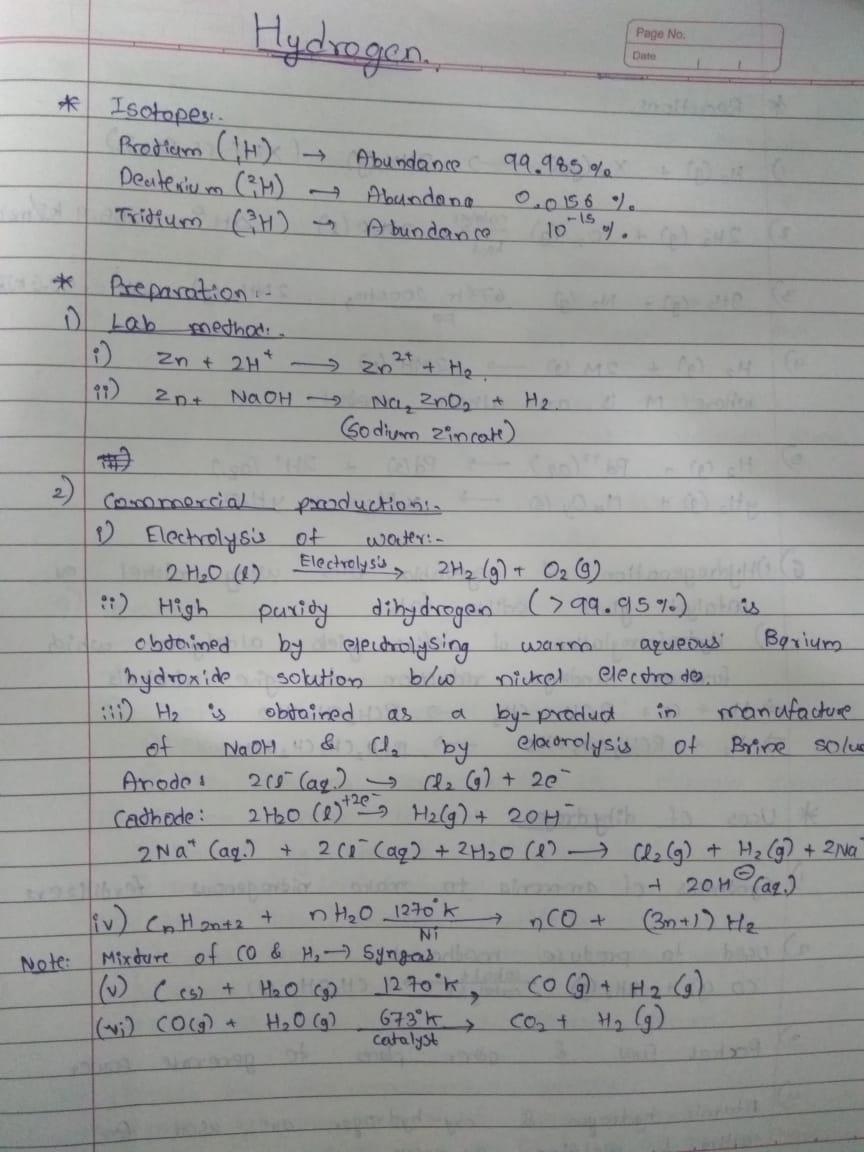 Hydrogen.
Page No.
Date
* Isotopes:-
Protium (¹₁H) → Abundance 99.985%
Deuterium (²₁H) → Abundana 0.0156 %.
Tritium (³₁H) → Abundance 10⁻¹⁵ %.
* Preparation:-
1) Lab method:-
i) Zn + 2H⁺ → Zn²⁺ + H₂.
ii) Zn + NaOH → Na₂ZnO₂ + H₂.
(Sodium zincate)
2) Commercial production:-
i) Electrolysis of water:-
2H₂O (l) Electrolysis → 2H₂(g) + O₂(g)
ii) High purity dihydrogen (>99.95%) is
obtained by electrolysing warm aqueous Barium
hydroxide solution b/w nickel electrodes.
iii) H₂ is obtained as a by-product in manufacture
of NaOH & Cl₂ by electrolysis of Brine solu
Anode: 2Cl⁻(aq.) → Cl₂(g) + 2e⁻
Cathode: 2H₂O (l) +2e⁻ → H₂(g) + 2OH⁻
2Na⁺(aq.) + 2Cl⁻(aq) + 2H₂O(l) → Cl₂(g) + H₂(g) + 2Na⁺
+ 2OH⊖(aq.)
iv) CnH2n+2 + nH₂O 1270°K → Ni nCO + (3n+1) H₂
Note: Mixture of CO & H₂ → Syngas
(v) C(s) + H₂O(g) 1270°K → CO(g) + H₂(g)
(vi) CO(g) + H₂O(g) 673°K → catalyst CO₂ + H₂(g)